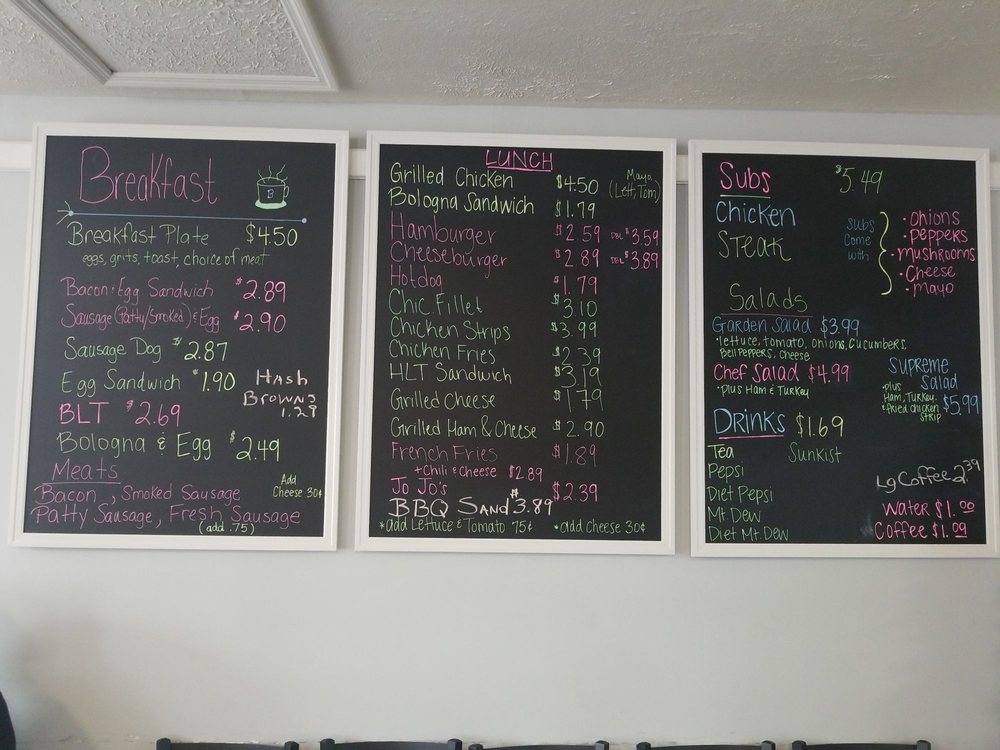 Breakfast
B
Breakfast Plate $4.50
eggs, grits, toast, choice of meat
Bacon & Egg Sandwich $2.89
Sausage (Patty/Smoked) & Egg $2.90
Sausage Dog $2.87
Egg Sandwich $1.90
Hash
Browns
1.29
BLT $2.69
Bologna & Egg $2.49
Meats
Bacon, Smoked Sausage
Add
Cheese 30¢
Patty Sausage, Fresh Sausage
(add .75)
LUNCH
Grilled Chicken $4.50 Mayo
(Lett, Tom)
Bologna Sandwich $1.79
Hamburger $2.59 DBL $3.59
Cheeseburger $2.89 DBL $3.89
Hotdog $1.79
Chic. Fillet $3.10
Chicken Strips $3.99
Chicken Fries $2.39
HLT Sandwich $3.19
Grilled Cheese $1.79
Grilled Ham & Cheese $2.90
French Fries $1.89
+ Chili & Cheese $2.89
Jo Jo's $2.39
BBQ Sand $3.89
*add Lettuce & Tomato 75¢ *add Cheese 30¢
Subs $5.49
Chicken
Steak
Subs
Come
with
• Onions
• Peppers
• Mushrooms
• Cheese
• Mayo
Salads
Garden Salad $3.99
• lettuce, tomato, onions, cucumbers,
Bell Peppers, cheese
Chef Salad $4.99
• Plus Ham & Turkey
Supreme
Salad
• Plus
Ham, Turkey,
& fried chicken
strip
$5.99
Drinks $1.69
Tea
Sunkist
Pepsi
Diet Pepsi
Mt. Dew
Diet Mt. Dew
Lg Coffee 2.39
Water $1.00
Coffee $1.09